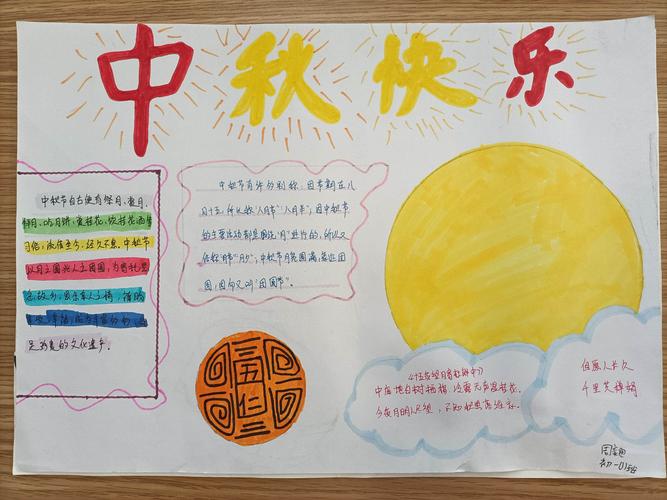 中秋快乐
中秋节自古便有祭月、赏月、
拜月、吃月饼、赏桂花、饮桂花酒等
习俗，流传至今，经久不息。中秋节
以月之圆兆人之团圆，为寄托思
念故乡，思念亲人之情，祈盼
丰收、幸福，成为丰富多彩、
足珍贵的文化遗产。
中秋节有许多别称：因节期在八
月十五，所以称"八月节""八月半"；因中秋节
的主要活动都是围绕"月"进行的，所以又
俗称"月节""月夕"；中秋节月亮圆满，象征团
圆，因而又叫"团圆节"。
五仁
《十五夜望月寄杜郎中》
中庭地白树栖鸦，冷露无声湿桂花。
今夜月明人尽望，不知秋思落谁家。
但愿人长久
千里共婵娟
初一